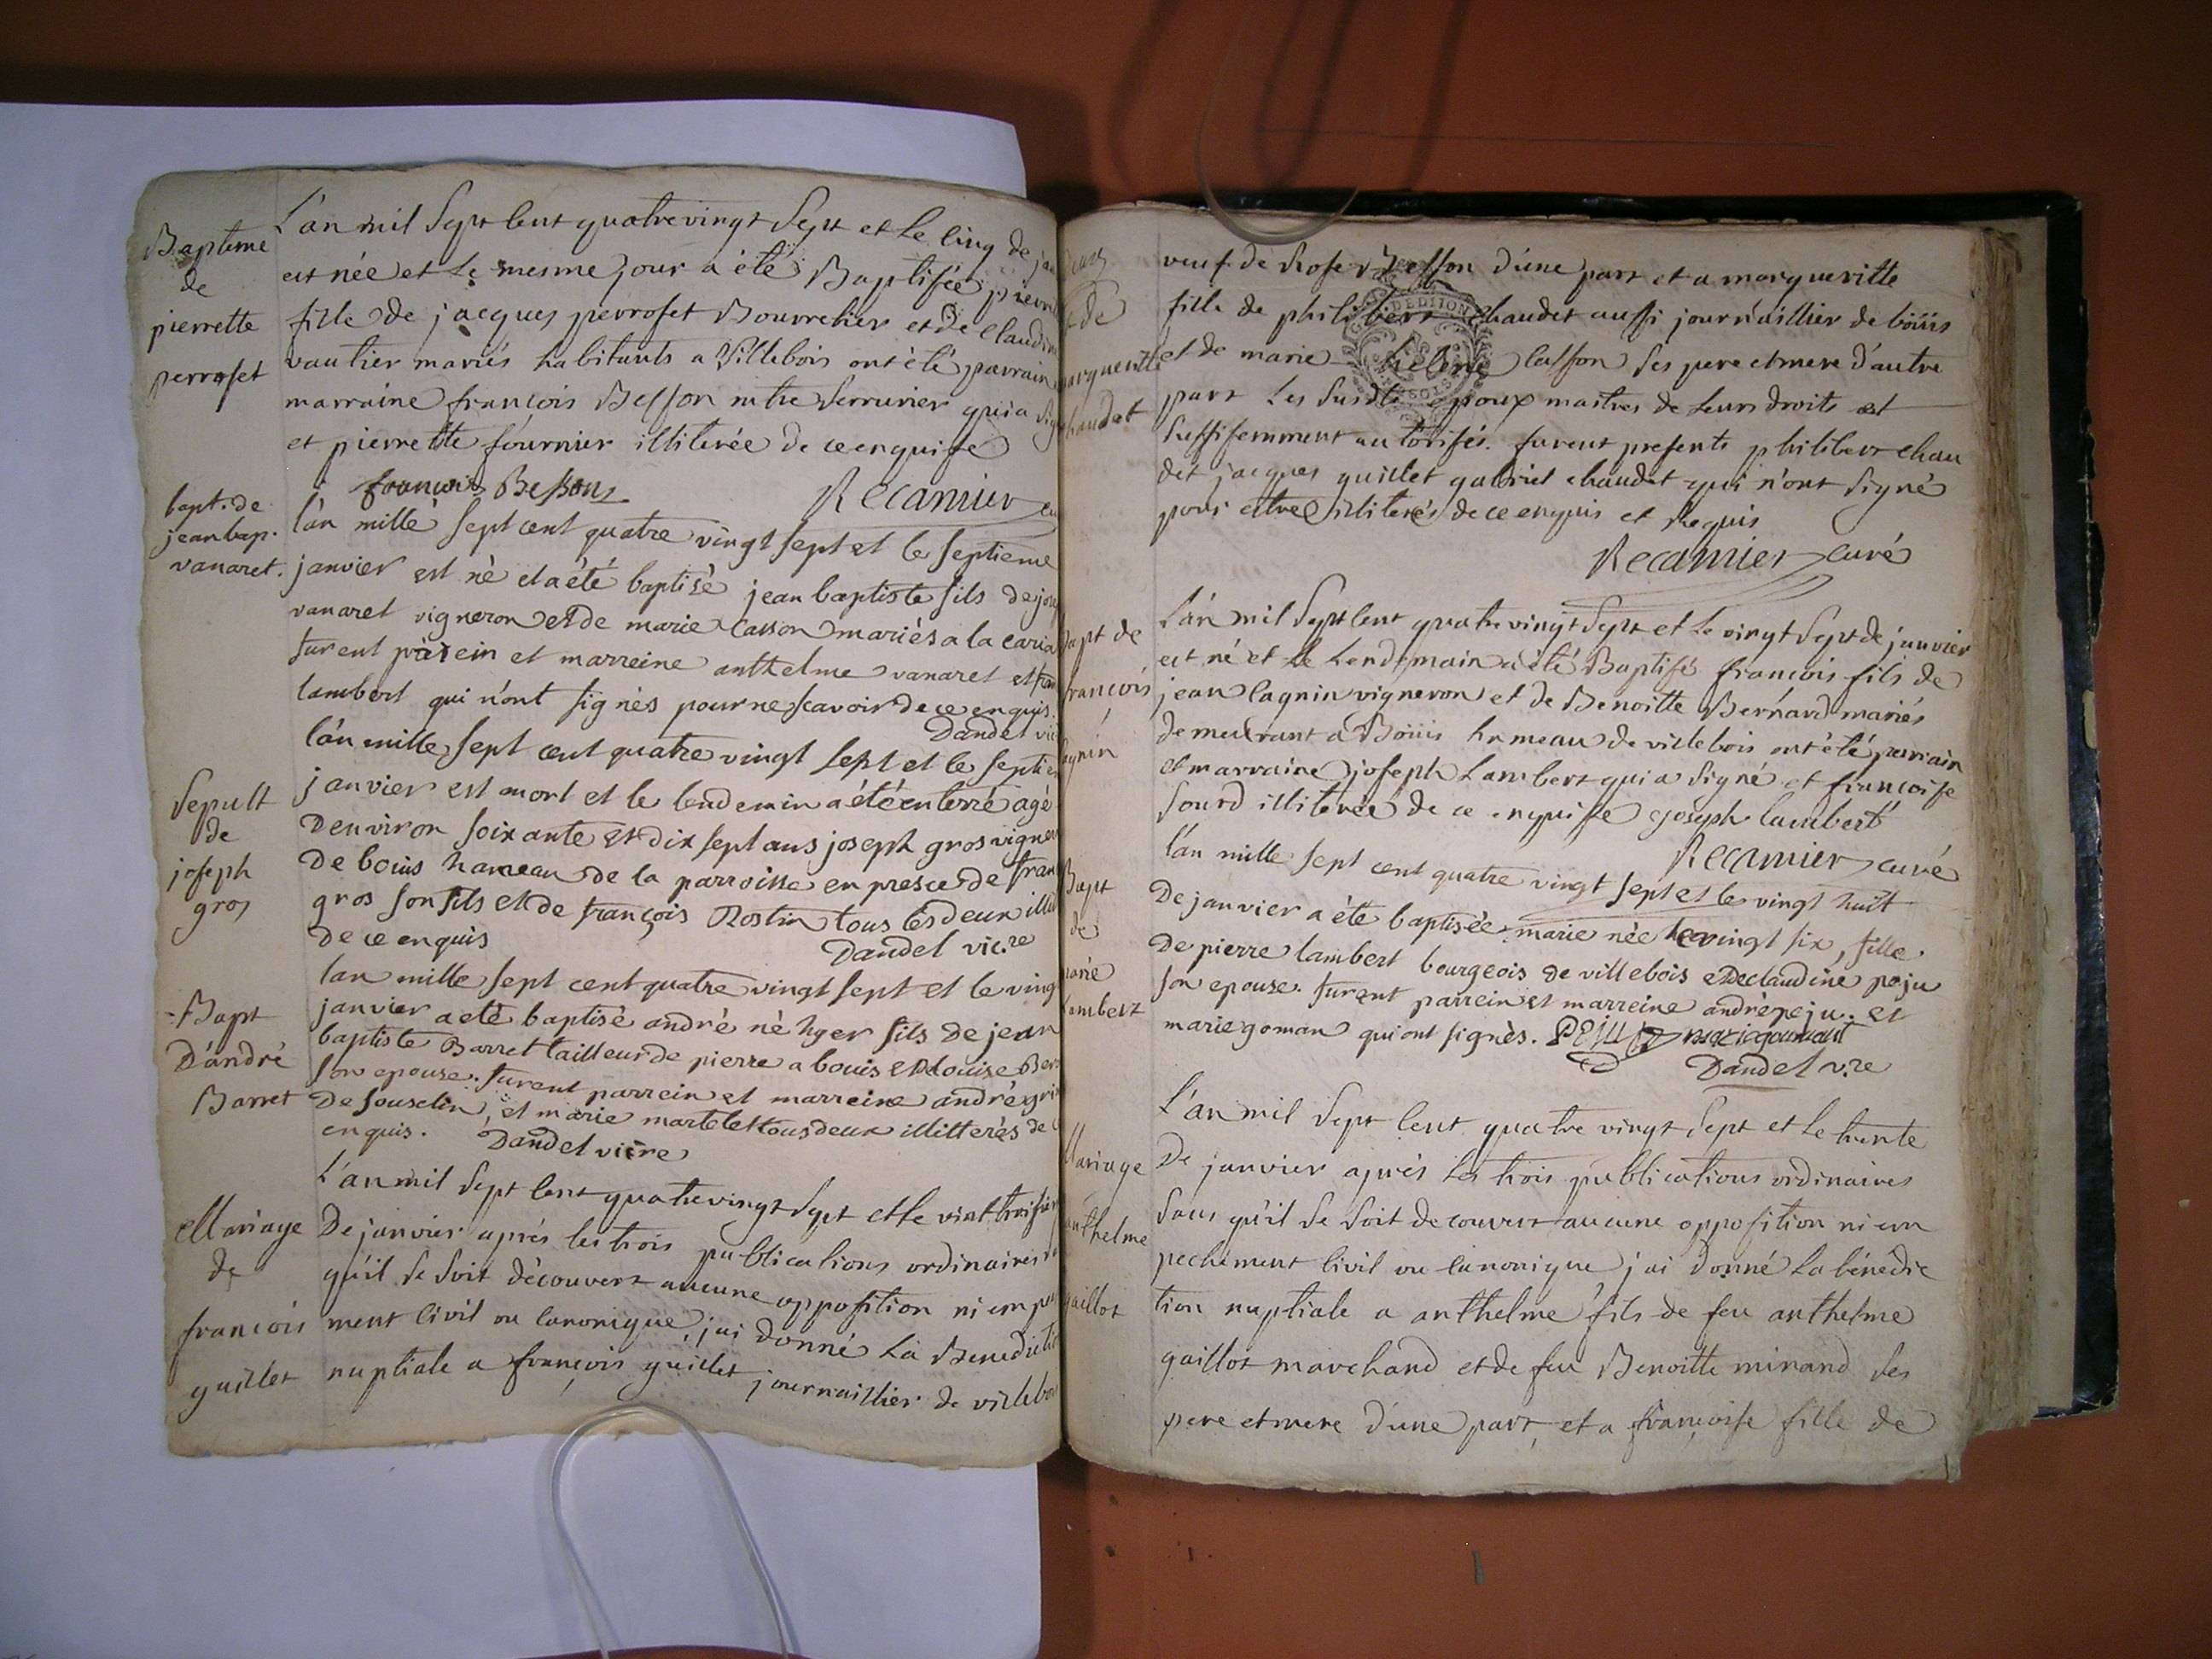 Baptême
de
pierrette
perroset
L'an mil Sept Cent quatre vingt Sept et le Cinq de
est née et le mesme jour a été Baptisée
fille de jacques perroset Bourrelier et de Claudine
vautier mariés habitants a Villebois ont été parrain
marraine françois Besson mtre Serrurier qui a
et pierrette fournier illiterée de ce enquise
françois Bessons Récamier
bapt. de
jean bap.
vanaret.
l'an mille sept cent quatre vingt sept et le septieme
janvier est nè et a été baptisè jean baptiste fils de
vanaret vigneron et de marie Casson mariès a la
furent pàrein et marreine anthelme vanaret et
lambert qui n'ont signès pour ne scavoir de ce enquis.
Dandel
Sepult
de
joseph
gros
l'an mille sept cent quatre vingt sept et le
janvier est mort et le lendemin a été enterré agé
D'environ soixante et dix sept ans joseph gros
De bouis hameau de la parroisse en presce de
gros son fils et de françois Rostin tous les deux
de ce enquis Dandel vic.re
Bapt
D'andré
Barret
lan mille sept cent quatre vingt sept et le
janvier a eté baptisé andrè nè hyer fils de jean
baptiste Barret tailleur de pierre a bouis et de louise
son epouse. furent parrein et marreine andré
De souselin, et marie martelet tous deux illitterès de
enquis. Dandel vicre
Mariage
de
françois
guillet
L'an mil Sept Cent quatre vingt Sept et le
De janvier aprés les trois publications ordinaires
qu'il se soit découvert aucune opposition ni
ment Civil ou Canonique, j'ai donné la
nuptiale a françois guillet journaillier de
veuf de Rose Besson d'une part et a margueritte
fille de philibert Chaudet aussi journaillier de boüis
et de marie helène Casson ses pere et mere d'autre
part Les Susdts epoux maitres de Leurs droits et
Suffisemment autorisés. furent presents philibert Chau
det jacques guillet gabriel chaudet qui n'ont Signé
pour etre illiterés de ce enquis et Requis
Recamier curé
bapt de
françois
L'an mil Sept Cent quatre vingt Sept et Le vingt Sept de janvier
est né et Le Lendemain a été Baptisé françois fils de
jean Cagnin vigneron et de Benoitte Bernard mariés
demeurant a Boüis hameau de villebois ont été parrain
et marraine joseph Lambert qui a Signé et françoise
Sourd illiterée de ce enquise joseph lambert
Recamier curé
Bapt
de
l'an mille sept cent quatre vingt sept et le vingt huit
De janvier a été baptisèe marie née le vingt six, fille
De pierre lambert bourgeois de villebois et De claudine peju
son epouse. furent parrein et marreine andrè peju. et
marie goman qui ont signès. PEJU marie goumant
Dandel v.re
Mariage
anthelme
gaillot
L'an mil Sept Cent quatre vingt Sept et Le trente
De janvier aprés les trois publications ordinaires
Sans qu'il se soit decouvert aucune opposition ni em
pechement Civil ou Canonique j'ai donné La bénédic
tion nuptiale a anthelme fils de feu anthelme
gaillot marchand et de feu Benoitte minand Ses
pere et mere d'une part, et a françoise fille de